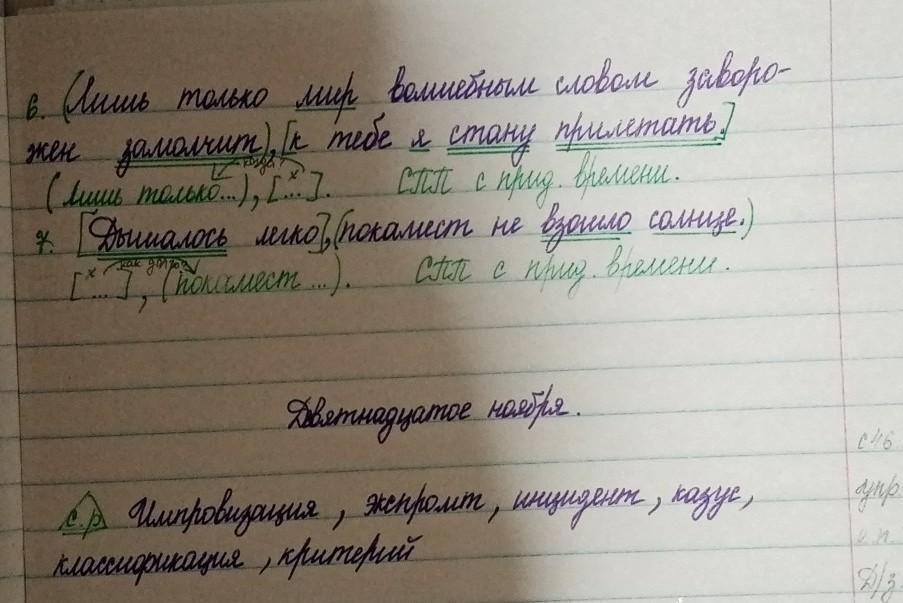 6. (Лишь только мир волшебным словом заворо-
жен замолчит), [к тебе я стану прилетать.]
когда? х
(лишь только...), [...]. СПП с прид. времени.
7. [Дышалось легко], (покамест не взошло солнце.)
х как долго?
[...], (покамест ...). СПП с прид. времени.
Девятнадцатое ноября.
с.р. Импровизация, экспромт, инцидент, казус,
классификация, критерий
упр.
Д/з